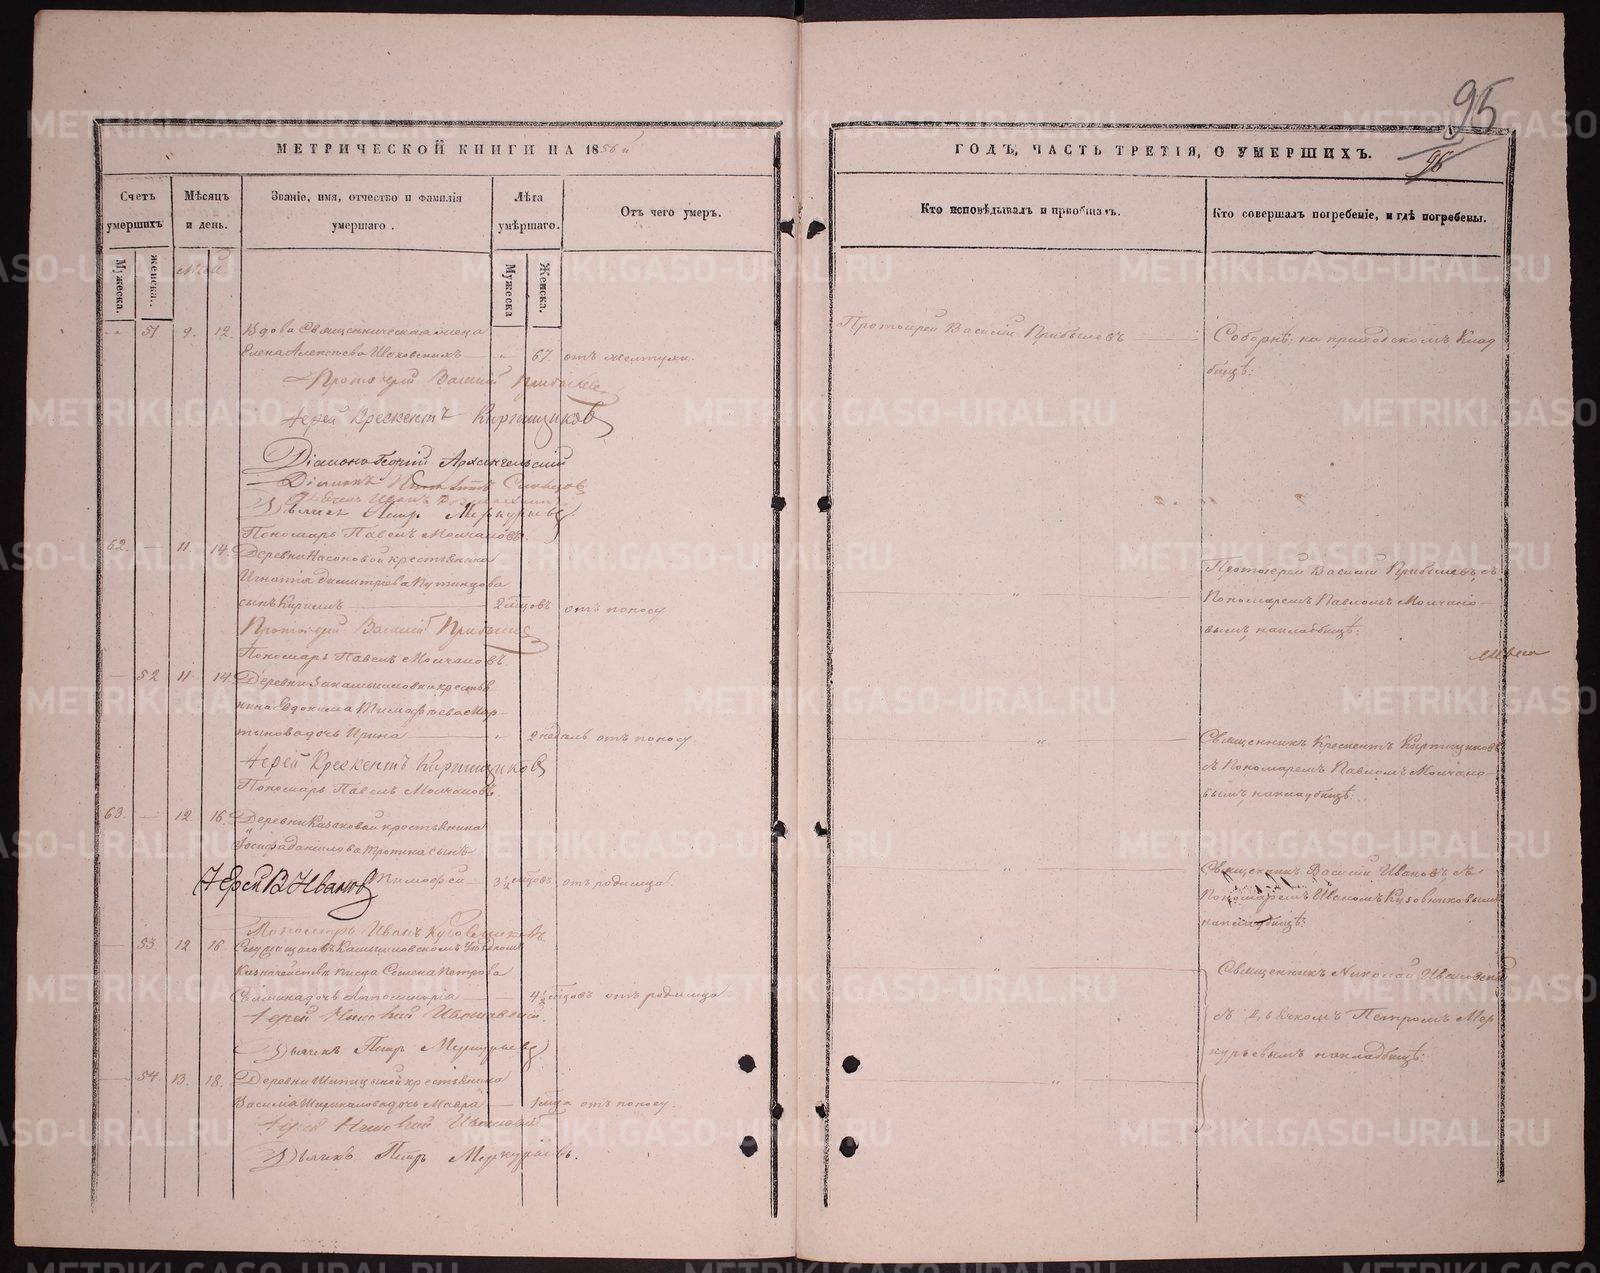 95
96
МЕТРИЧЕСКОЙ КНИГИ НА 1856й
ГОДЪ, ЧАСТЬ ТРЕТІЯ, О УМЕРШИХЪ.
Счетъ умершихъ
Мѣсяцъ и день.
Званіе, имя, отчество и фамилія умершаго.
Лѣта умѣршаго.
Отъ чего умеръ.
Кто исповѣдывалъ и пріобщалъ.
Кто совершалъ погребеніе, и гдѣ погребены.
Мужеска.
женска.
Май
Мужеска
Женска.
51 9. 12. Вдова Священническая жена
Елена Алексѣева Иваховскихъ 67. отъ желтухи.
Протоіерей Василій Прибылевъ
Соборнѣ, на приходскомъ Клад
бищѣ:
Протоіерей Василій Прибылевъ
Іерей Крескентъ Киргищиковъ
Діаконъ Георгій Архангельскій
Діаконъ
Дьячекъ Петр Меркурьевъ
Пономарь Павелъ Молчановъ.
62. 11. 14. Деревни Насоновой крестьянина
Игнатія Димитріева Путинцова
сынъ Кириллъ 2 мѣцовъ отъ поносу
Протоіерей Василій Прибылевъ, съ
Пономаремъ Павломъ Молчано-
вымъ на кладбищѣ:
Протоіерей Василій Прибылев
Пономарь Павелъ Молчановъ
52 11 14. Деревни Закамышловки крестья
нина Евдокима Тимофѣева Мар-
тынова дочь Ирина 2 недѣль отъ поносу.
Священникъ Крескентъ Киргищиковъ
съ Пономаремъ Павломъ Молчано-
вымъ на кладбищѣ:
Іерей Крескентъ Киргищиков
Пономарь Павелъ Молчановъ.
63. 12 16. Деревни Казаковой крестьянина
Іосифа Данилова сынъ
Тимофей 3½ мѣцовъ отъ родимца.
Священникъ Василій Ивановъ съ
Пономаремъ Иваномъ Кузовниковымъ
на кладбищѣ:
Іерей В Иванов
Пономарь Иванъ Кузовниковъ.
53. 12 16 Служащаго въ Камышловскомъ Уѣздномъ
Казначействѣ писца Семена Петрова
дочь Апполинарія 4½ мѣцовъ отъ родимца
Священникъ Николай
съ Дьячкомъ Петромъ Мер
курьевымъ на кладбищѣ:
Іерей Николай
Дьячекъ Петр Меркурьев
54. 13. 18. Деревни Шипицыной крестьянина
Василія дочь Мавра 1 мѣца отъ поносу.
Іерей Николай
Дьячекъ Петр Меркурьевъ.
METRIKI.GASO-URAL.RU